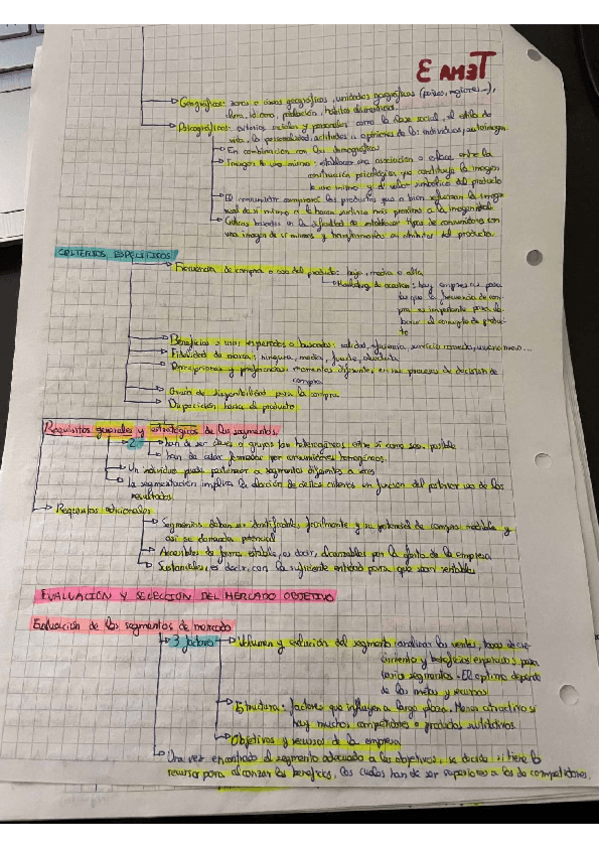 TEMA 3
Geográficas: zonas o áreas geográficas, unidades geográficas (países, regiones...),
clima, idioma, población, hábitos
Psicográficas: criterios sociales y personales como la clase social, el estilo de
vida, la personalidad, actitudes u opiniones de los individuos, autoimagen
En combinación con las demográficas
Imagen de uno mismo: establecer una asociación o enlace entre la
construcción psicológica que constituye la imagen
de uno mismo y el valor simbólico del producto
El consumidor comprará los productos que o bien refuerzan la imagen
de sí mismo o le hacen sentirse más próximo a la
en la dificultad de establecer tipos de consumidores con
una imagen de sí mismos y transformarlos en atributos del producto.
CRITERIOS ESPECÍFICOS
Frecuencia de compra o uso del producto: baja, media o alta
Marketing de ocasión: hay empresas para
las que la frecuencia de com-
pra es importante para
el concepto de produc-
to
Beneficios o usos esperados o buscados: calidad, eficiencia, servicio
Fidelidad de marca: ninguna, media, fuerte, absoluta
Percepciones y preferencias: momentos diferentes en su proceso de decisión de
compra
Grado de disponibilidad para la compra
Disposición hacia el producto
Requisitos generales y estratégicos de los segmentos
2
han de ser clases o grupos tan heterogéneos entre sí como sea posible
han de estar formados por consumidores homogéneos
Un individuo puede pertenecer a segmentos diferentes a veces
La segmentación implica la elección de ciertos criterios en función del posterior uso de los
resultados.
Requisitos adicionales
Segmentos deben ser identificables fácilmente y su potencial de compra medible y
así su demanda potencial
Accesibles de forma estable, es decir, alcanzables por la oferta de la empresa
Sustanciales, es decir, con la suficiente entidad para que sean rentables
EVALUACIÓN Y SELECCIÓN DEL MERCADO OBJETIVO
Evaluación de los segmentos de mercado
3 factores
Volumen y evolución del segmento: analizar las ventas, tasas de cre-
cimiento y beneficios esperados para
varios segmentos. El óptimo depende
de las metas y recursos
Estructura: factores que influyen a largo plazo. Menos atractivo si
hay muchos competidores o productos sustitutivos
Objetivos y recursos de la empresa
Una vez encontrado el segmento adecuado a los objetivos, se decide si tiene los
recursos para alcanzar los beneficios, los cuales han de ser superiores a los de competidores.